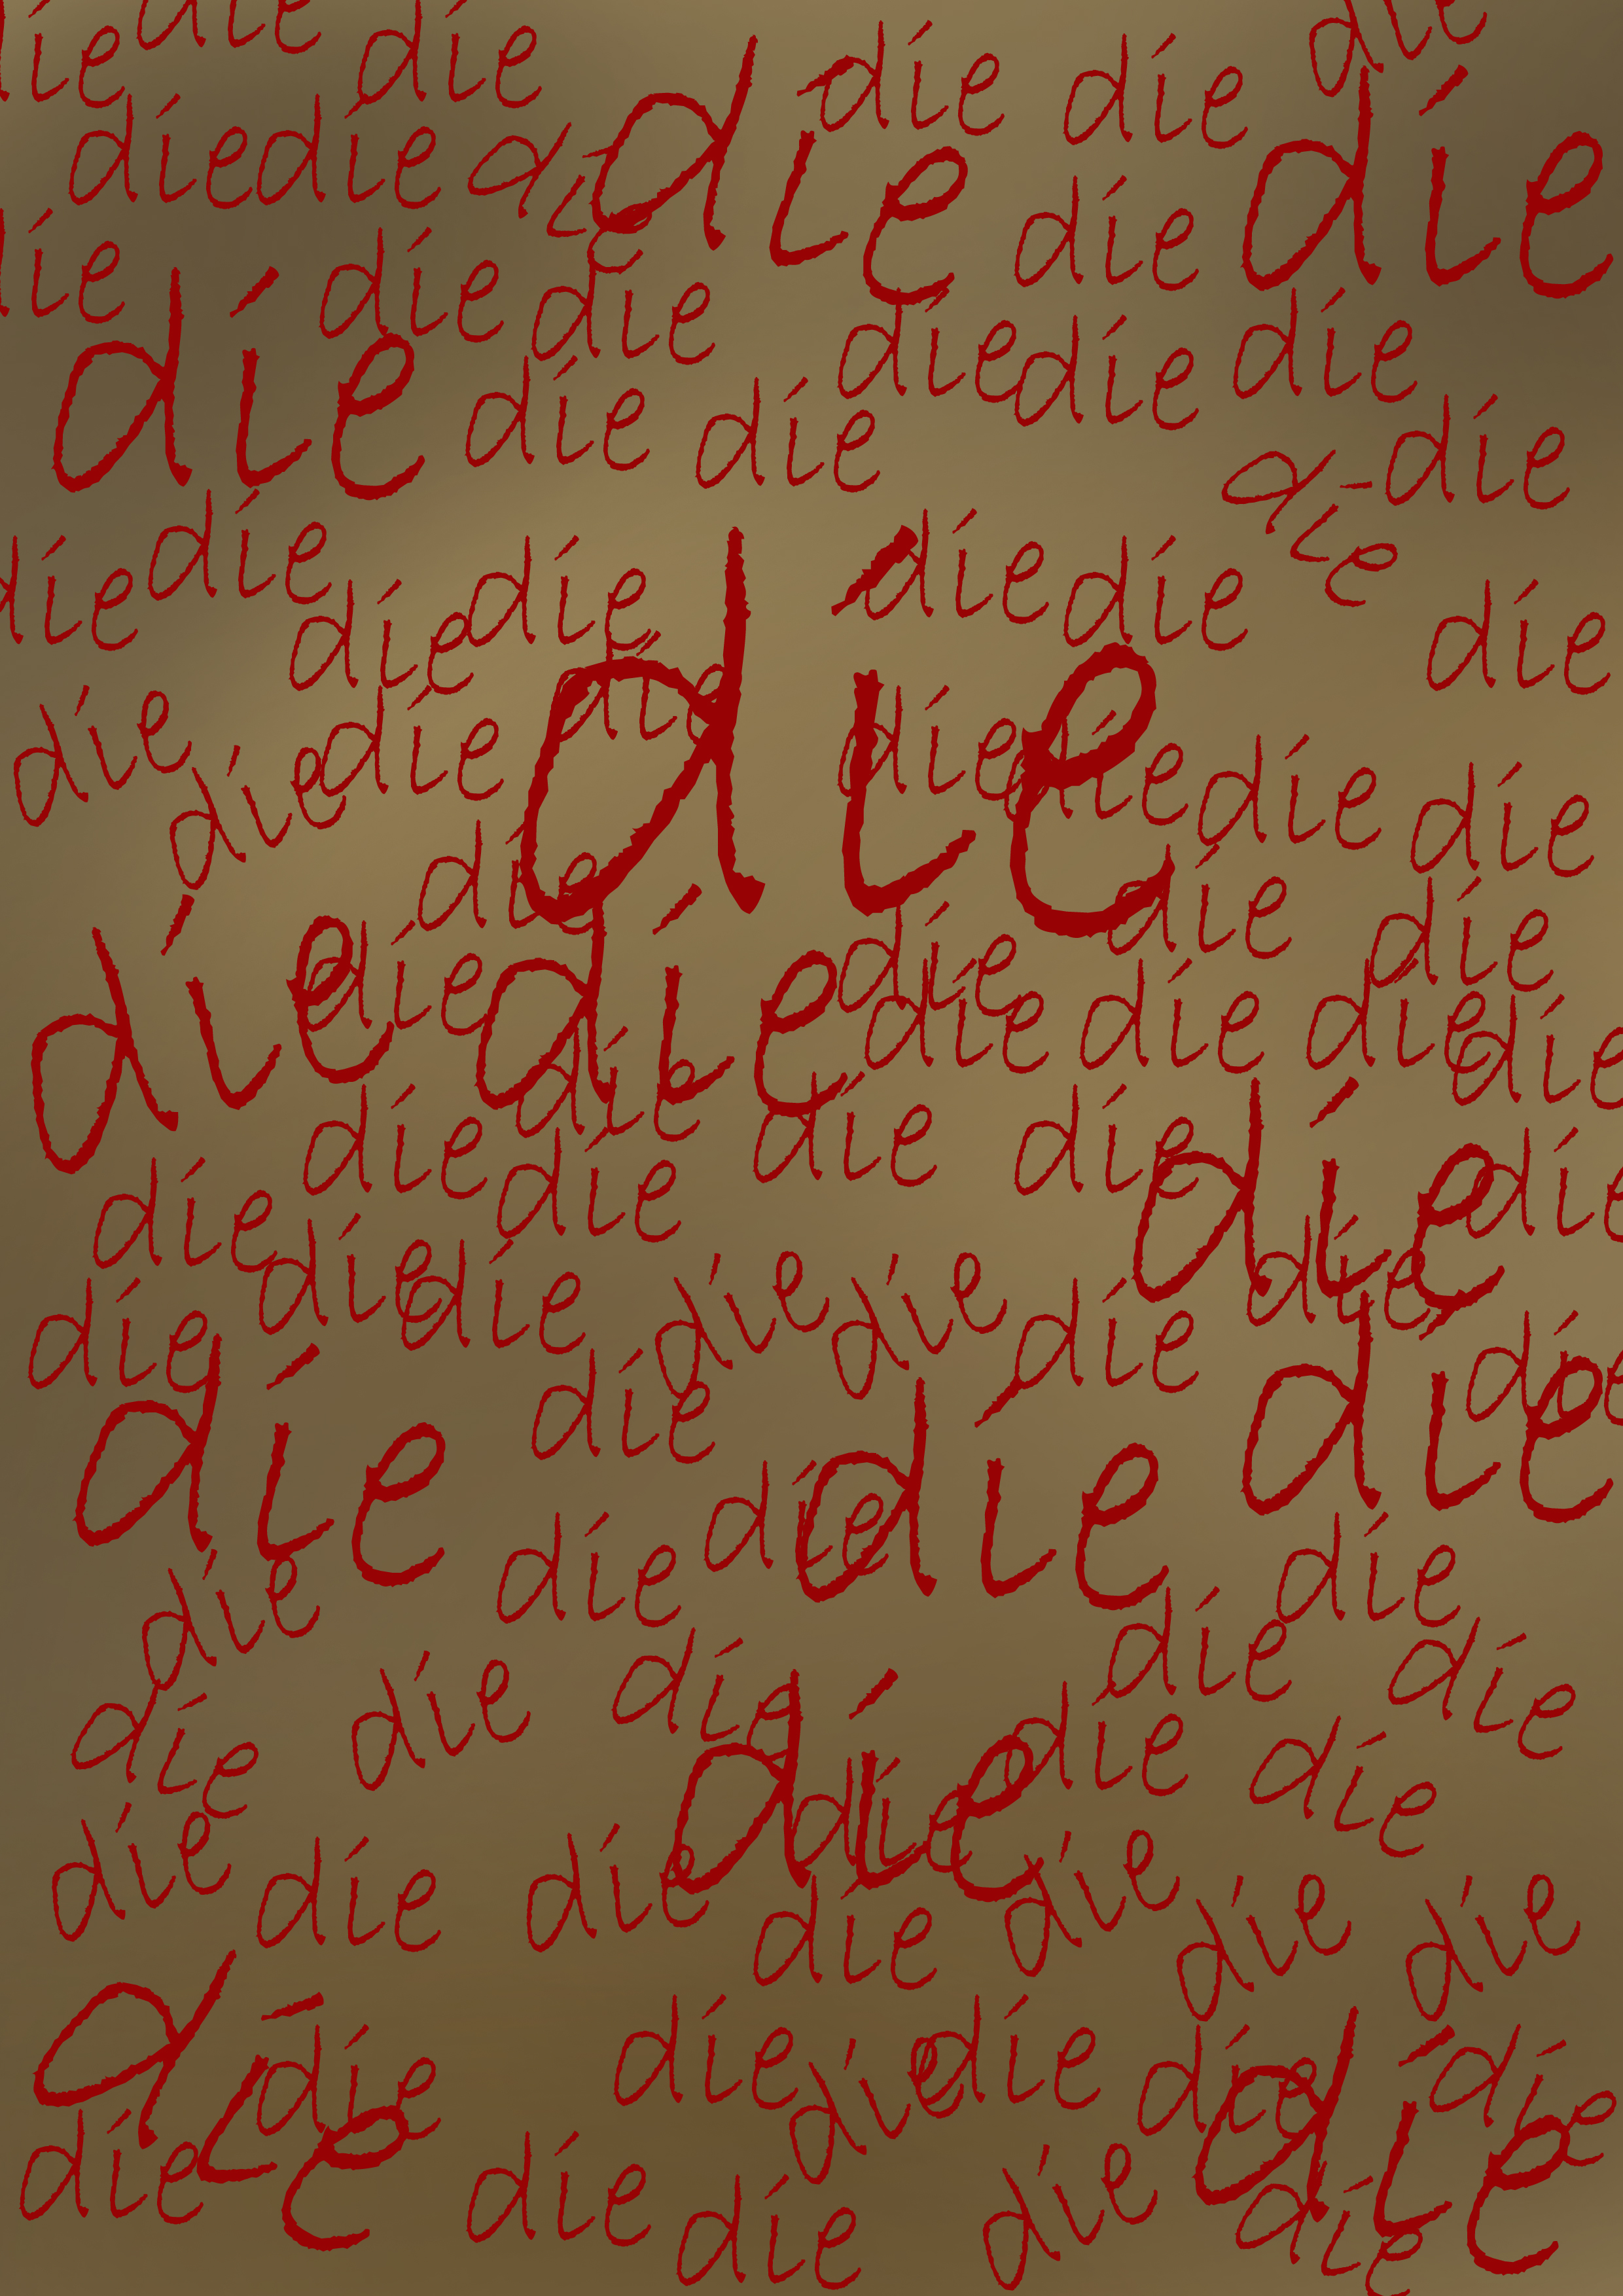 die die die die die die
die die die die die die
die die die die die
die die die die die
die die die die die
die die die die die
die die die die die die
die die die die die die
die die die die die die
die die die die die die
die die die die die
die die die die die die
die die die die die
die die die die die
die die die die die
die die die die
die die die die
die die die die die
die die die die die
die die die die die die
die die die die die die
die die die die die